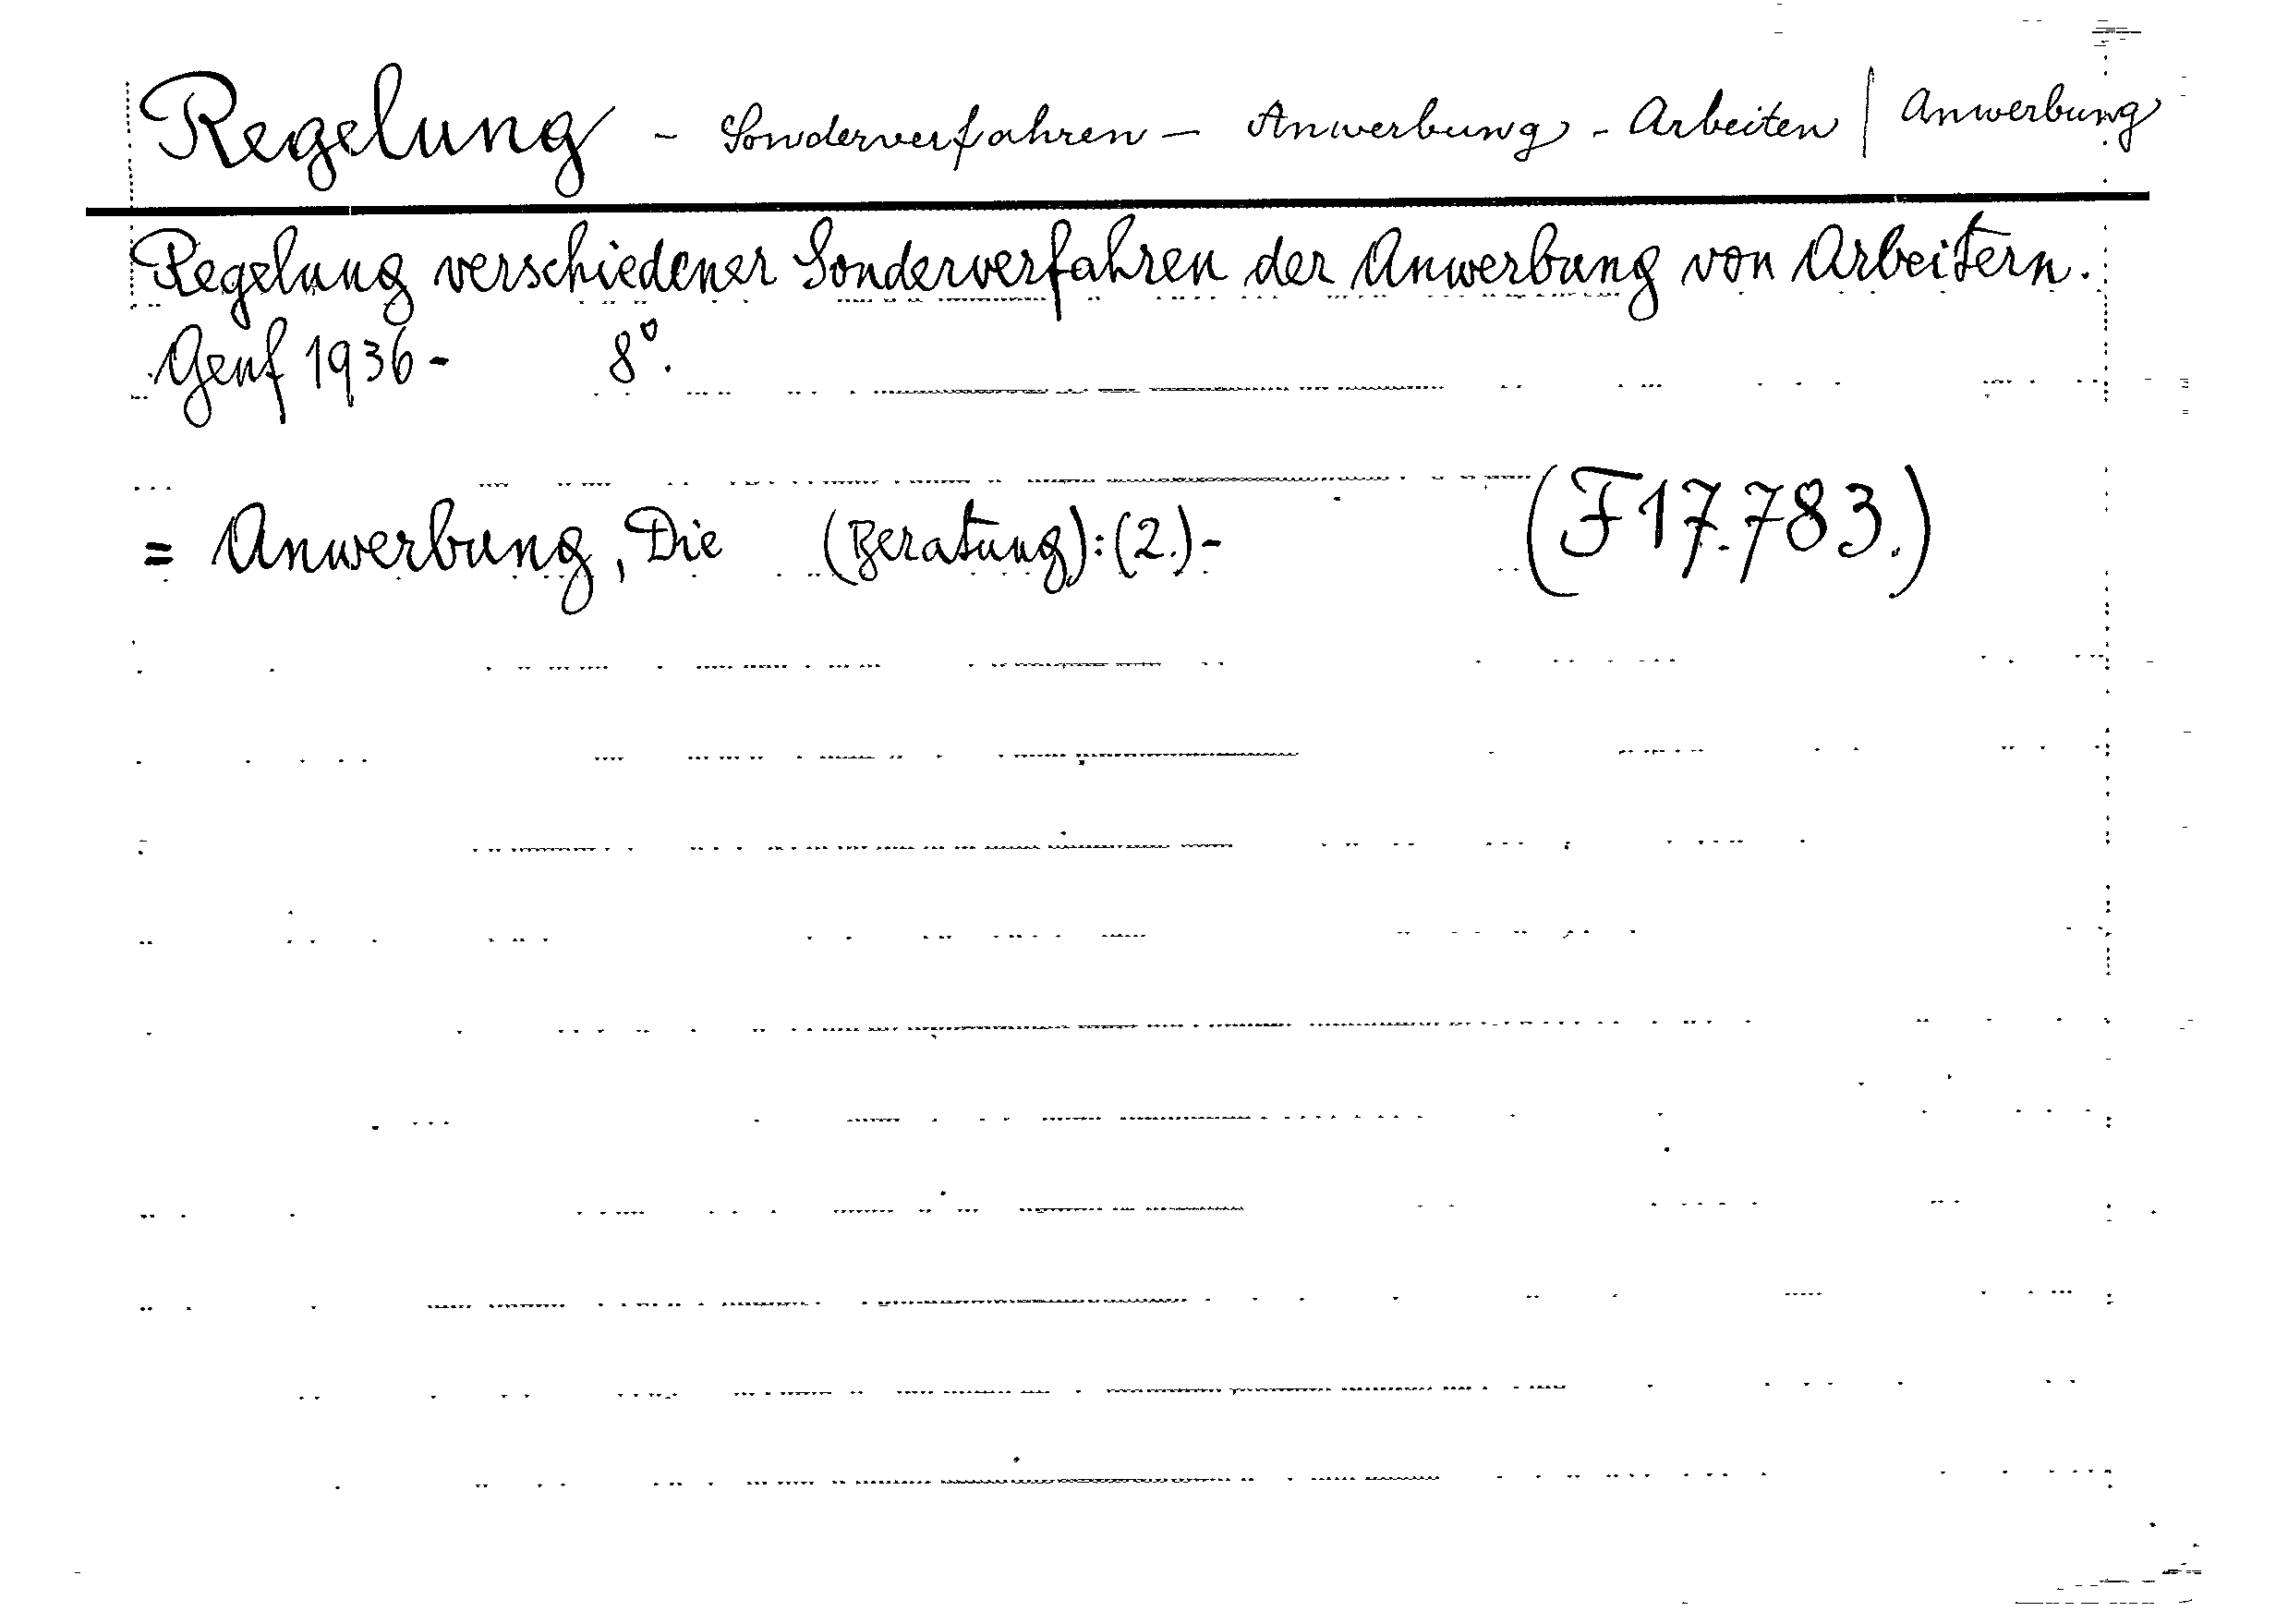 Regelung - Sonderverfahren - Anwerbung - Arbeiten | Anwerbung
Regelung verschiedener Sonderverfahren der Anwerbung von Arbeitern.
Genf 1936 - 8°.
= Anwerbung, Die (Beratung): (2.) - (F 17.783.)